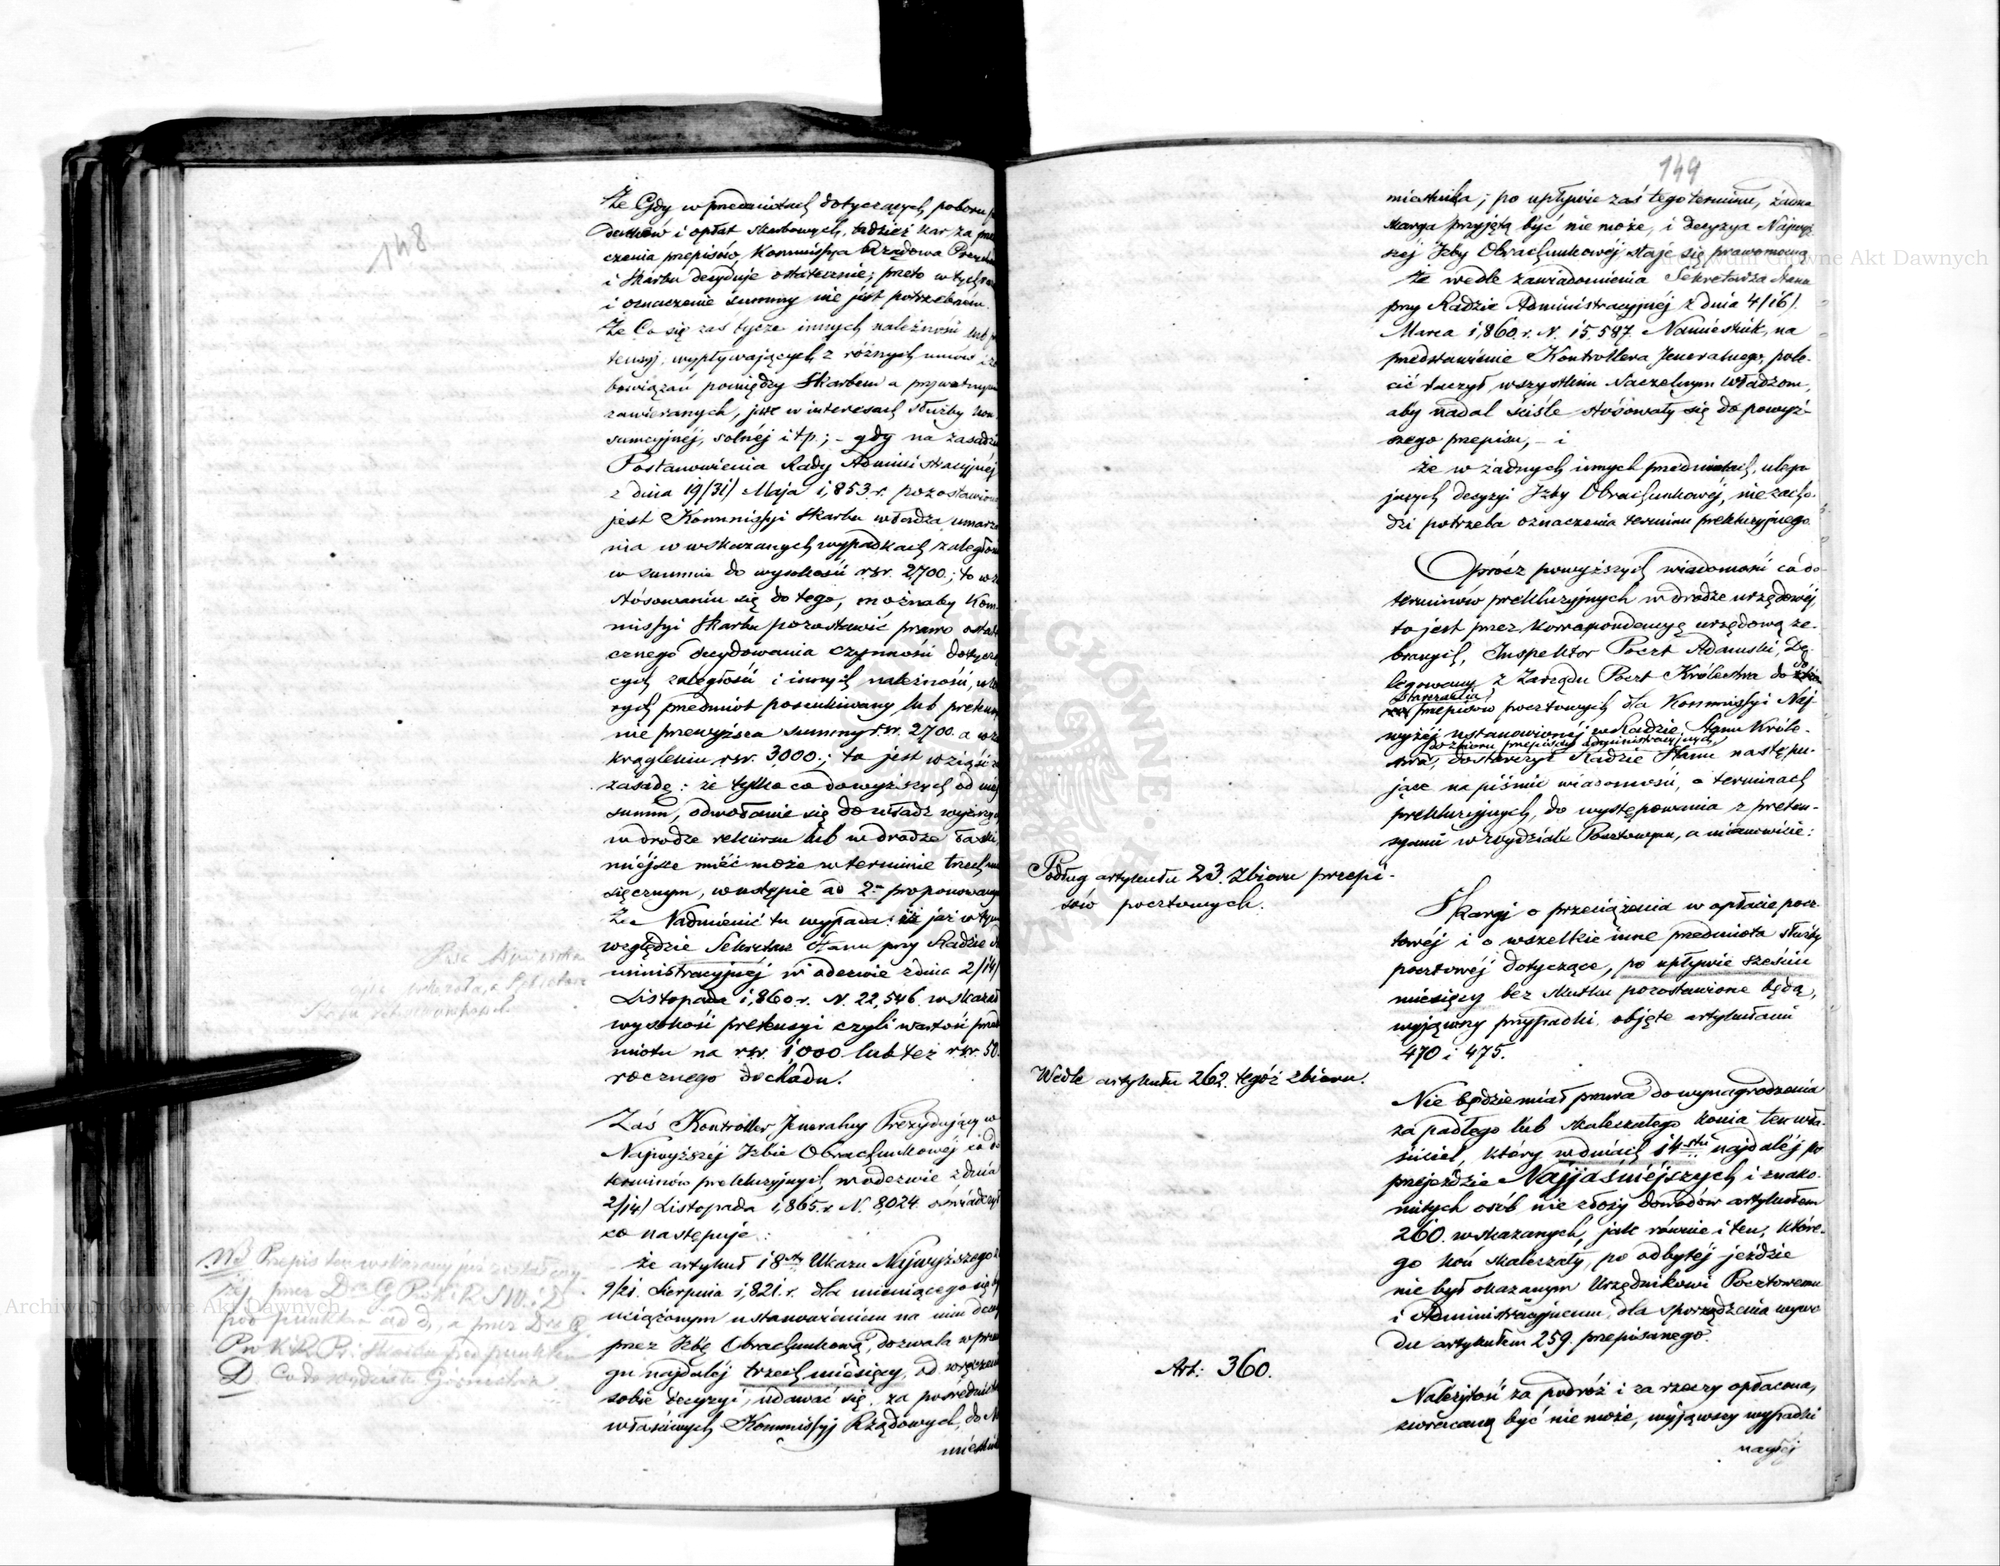 148
że Gdy w przedmiotach dotyczących poboru po
datków i opłat skarbowych, tudzież kar za prze
czenia przepisów, Kommissya Rządowa Przych
i Skarbu decyduje ostatecznie; przeto w tych
i oznaczenie summy nie jest potrzebném.
że Co się zaś tycze innych należności lub p
tensyj, wypływających z różnych umów i zo
bowiązań pomiędzy Skarbem a prywatnymi
zawieranych, jak w interesach służby kon
sumcyjnéj, solnéj i t.p.; – gdy na zasadzie
Postanowienia Rady Administracyjnéj
z dnia 19/31/ Maja 1,853 r. pozostawiona
jest Kommissyi Skarbu władza umarza
nia w wskazanych wypadkach zaległości
w summie do wysokości rsr. 2,700.; to w za
stósowaniu się do tego, możnaby Kom
missyi Skarbu pozostawić prawo ostate
cznego decydowania czynności dotyczą
cych zaległości i innych należności, w któ
rych przedmiot poszukiwany, lub pretensya
nie przewyższa summy rsr. 2,700. a w zao
krągleniu rsr. 3,000.; to jest wziąść za
zasadę: że tylko co do wyższych od niéj
summ, odwołanie się do władz wyższych
w drodze rekursu lub w drodze łaski,
miejsce mieć może w terminie trzech mie
sięcznym, w ustępie ad 2. proponowanym
że Nadmienić tu wypada: iż już w tym
względzie Sekretarz Stanu przy Radzie Ad
ministracyjnéj w odezwie z dnia 2/14/
Listopada 1,860 r. N. 22,546. wskazał
wysokość pretensyi czyli wartość przed
miotu na rsr. 1000. lub też rsr. 50.
rocznego dochodu.
Zaś Kontroller Jeneralny Prezydujący w
Najwyższéj Izbie Obrachunkowéj co do
terminów prekluzyjnych w odezwie z dnia
2/14/ Listopada 1,865. r. N. 8,024. oświadczył
co następuje:
że artykuł 18sty Ukazu Najwyższego z
9/21. Sierpnia 1,821. r. dla mieniącego się
uciążonym ustanowieniem na nim decyzyi
przez Izbę Obrachunkową, dozwala w prze
gu najdaléj trzech miesięcy, od wręczenia
sobie decyzyi, udawać się, za pośrednictwem
właściwych Kommissyj Rządowych, do Na
mieśtnika
Nb. Przepis ten wskazany już został
przez D. G. P.
pod punktem ad d, a przez D.
pod punktem
D. Co do wydziału Górnictwa.
149
miestnika; po upływie zaś tego terminu, żadna
skarga przyjętą być nie może, i decyzya Najwyż
széj Izby Obrachunkowéj staje się prawomocną
że wedle zawiadomienia Sekretarza Stanu
przy Radzie Administracyjnéj z dnia 4/16/.
Marca 1,860. r. N. 15,587. Namiestnik, na
przedstawienie Kontrollera Jeneralnego, pole-
cić raczył, wszystkim Naczelnym Władzom,
aby nadal ściśle stósowały się do powyż-
szego przepisu, – i
że w żadnych innych przedmiotach, ulega
jących decyzyi Izby Obrachunkowéj, nie zacho-
dzi potrzeba oznaczenia terminu prekluzyjnego.
Oprócz powyższych wiadomości co do
terminów prekluzyjnych w drodze urzędowéj,
to jest przez korrespondencyę urzędową ze-
branych, Inspektor Poczt Adamski, De-
legowany z Zarządu Poczt Królestwa do
dostarczenia
przepisów pocztowych dla Kommissyi Naj-
wyżéj ustanowionéj w Radzie Stanu Króle-
do zbioru przepisów administracyjnych,
stwa, dostarczył Radzie Stanu następu-
jące na piśmie wiadomości, o terminach
prekluzyjnych, do występowania z preten-
syami w wydziale Pocztowym, a mianowicie:
Podług artykułu 23. Zbioru przepi-
sów pocztowych.
Skargi o przeciążenia w opłacie pocz-
towéj i o wszelkie inne przedmiota służby
pocztowéj dotyczące, po upływie sześciu
miesięcy bez skutku pozostawione będą,
wyjąwszy przypadki, objęte artykułami
470 i 475.
Wedle artykułu 262. tegóż zbioru.
Nie będzie miał prawa do wynagrodzenia
za padłego lub skaleczałego konia ten wła-
ściciel, który w dniach 14stu najdaléj po
przejeździe Najjaśniejszych i znako-
mitych osób nie złoży dowodów artykułem
260. wskazanych, jak równie i ten, które-
go koń skaleczały, po odbytéj jeździe
nie był okazanym Urzędnikowi Pocztowemu
i Administracyjnemu, dla sporządzenia wywo
du artykułem 259. przepisanego.
Art: 360.
Należytość za podróż i za rzeczy opłacona,
zwracaną być nie może, wyjąwszy wypadki
nagłéj
Archiwum Główne Akt Dawnych
Archiwum Główne Akt Dawnych